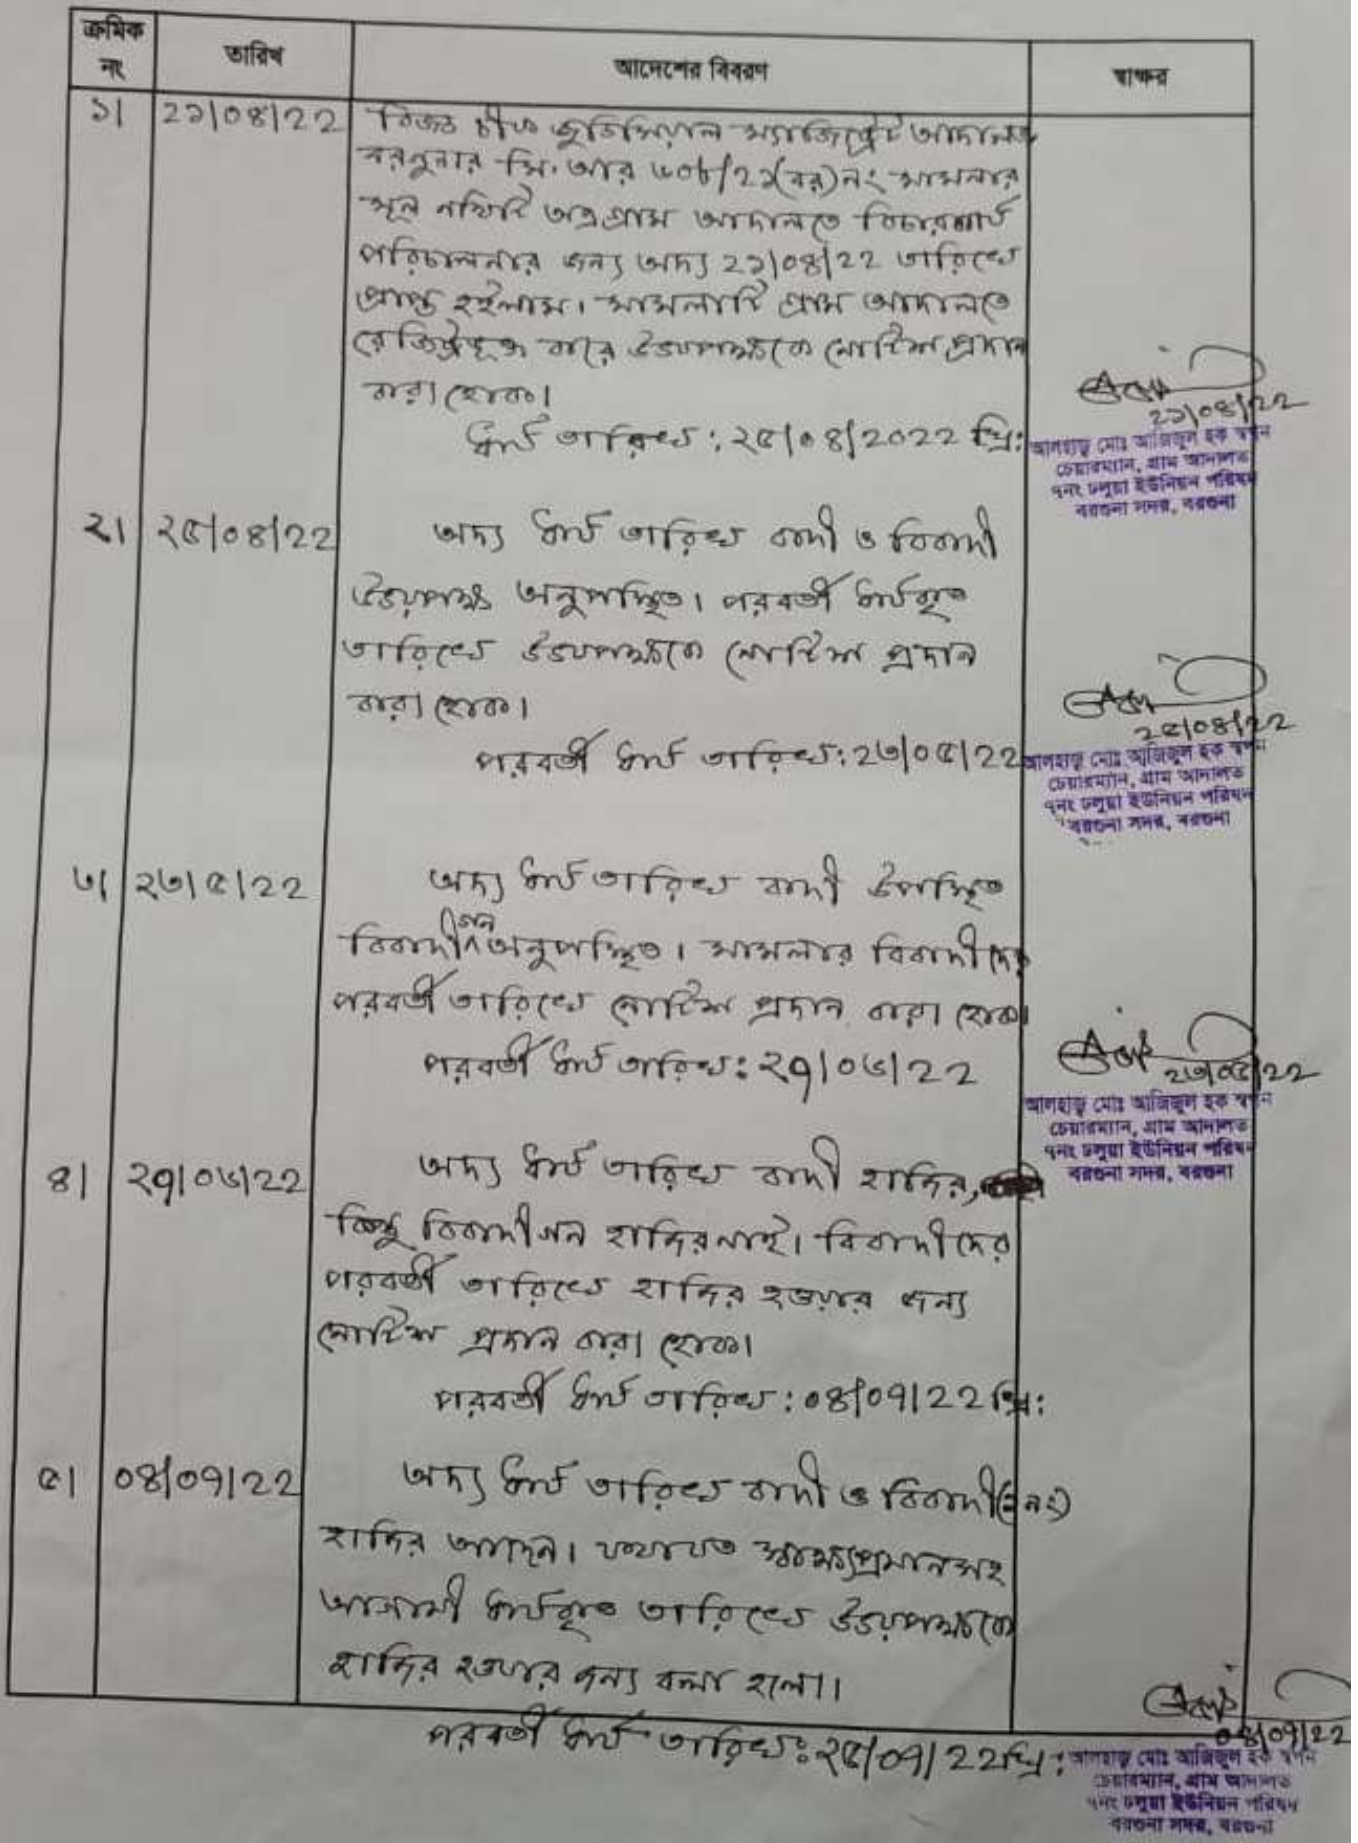 ক্রমিক নং
তারিখ
আদেশের বিবরণ
স্বাক্ষর
১। ২১/০৪/২২ বিজ্ঞ চীফ জুডিসিয়াল ম্যাজিস্ট্রেট আদালত
বরগুনার সি. আর ৬০৮/২১(বর) নং মামলার
মূল নথিটি অত্র গ্রাম আদালতে বিচারকার্য
পরিচালনার জন্য অদ্য ২১/০৪/২২ তারিখে
প্রাপ্ত হইলাম। মামলাটি গ্রাম আদালতে
রেজিষ্ট্রিভূক্ত করে উভয়পক্ষকে নোটিশ প্রদান
করা হোক।
ধার্য তারিখ: ২৫/০৪/২০২২ খ্রি:
২১/০৪/২২
আলহাজ্ব মোঃ আজিজুল হক স্বপন
চেয়ারম্যান, গ্রাম আদালত
৭নং ঢলুয়া ইউনিয়ন পরিষদ
বরগুনা সদর, বরগুনা
২। ২৫/০৪/২২ অদ্য ধার্য তারিখে বাদী ও বিবাদী
উভয়পক্ষ অনুপস্থিত। পরবর্তী ধার্যকৃত
তারিখে উভয়পক্ষকে নোটিশ প্রদান
করা হোক।
পরবর্তী ধার্য তারিখ: ২৩/০৫/২২
২৫/০৪/২২
আলহাজ্ব মোঃ আজিজুল হক স্বপন
চেয়ারম্যান, গ্রাম আদালত
৭নং ঢলুয়া ইউনিয়ন পরিষদ
বরগুনা সদর, বরগুনা
৩। ২৩/৫/২২ অদ্য ধার্য তারিখে বাদী উপস্থিত
বিবাদীগন অনুপস্থিত। মামলার বিবাদীদের
পরবর্তী তারিখে নোটিশ প্রদান করা হোক।
পরবর্তী ধার্য তারিখ: ২৭/০৬/২২
২৩/০৫/২২
আলহাজ্ব মোঃ আজিজুল হক স্বপন
চেয়ারম্যান, গ্রাম আদালত
৭নং ঢলুয়া ইউনিয়ন পরিষদ
বরগুনা সদর, বরগুনা
৪। ২৭/০৬/২২ অদ্য ধার্য তারিখে বাদী হাজির,
কিন্তু বিবাদীগন হাজির নাই। বিবাদীদের
পরবর্তী তারিখে হাজির হওয়ার জন্য
নোটিশ প্রদান করা হোক।
পরবর্তী ধার্য তারিখ: ০৪/০৭/২২ খ্রি:
৫। ০৪/০৭/২২ অদ্য ধার্য তারিখে বাদী ও বিবাদী
হাজির আছেন। যথাযত স্বাক্ষ্যপ্রমানসহ
আগামী ধার্যকৃত তারিখে উভয়পক্ষকে
হাজির হওয়ার জন্য বলা হলো।
পরবর্তী ধার্য তারিখ: ২৫/০৭/২২খ্রি:
০৪/০৭/২২
আলহাজ্ব মোঃ আজিজুল হক স্বপন
চেয়ারম্যান, গ্রাম আদালত
৭নং ঢলুয়া ইউনিয়ন পরিষদ
বরগুনা সদর, বরগুনা